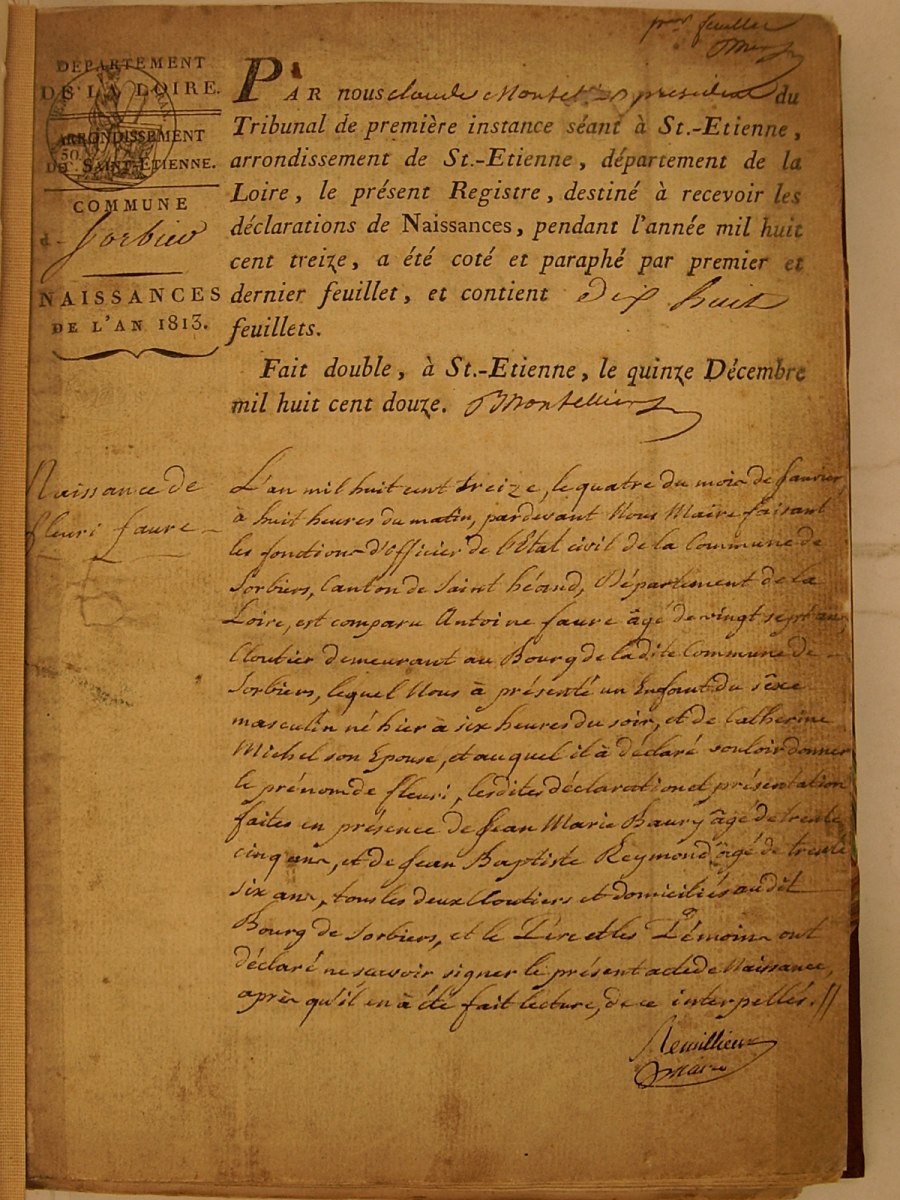 feuillet
DÉPARTEMENT
DE LA LOIRE.
ARRONDISSEMENT
DE SAINT-ETIENNE.
COMMUNE
de Sorbiers
NAISSANCES
DE L'AN 1813.
PAR nous claude président du
Tribunal de première instance séant à St.-Etienne,
arrondissement de St.-Etienne, département de la
Loire, le présent Registre, destiné à recevoir les
déclarations de Naissances, pendant l'année mil huit
cent treize, a été coté et paraphé par premier et
dernier feuillet, et contient dix huit
feuillets.
Fait double, à St.-Etienne, le quinze Décembre
mil huit cent douze. Montellier
Naissance de
fleuri faure
L'an mil huit cent treize, le quatre du mois de Janvier
à huit heures du matin, pardevant Nous Maire faisant
les fonctions d'Officier de l'Etat civil de la Commune de
Sorbiers, Canton de Saint héand, Département de la
Loire, est comparu Antoine faure âgé de vingt sept ans,
Cloutier demeurant au Bourg de ladite Commune de
Sorbiers, lequel Nous à présenté un Enfant du sèxe
masculin né hier à six heures du soir, et de Catherine
Michel son Epouse, et auquel il à déclaré vouloir donner
le prénom de fleuri, lesdites déclaration et présentation
faites en présence de Jean Marie Baury âgé de trente
cinq ans, et de Jean Baptiste Reymond âgé de trente
six ans, tous les deux Cloutiers et domiciliés audit
Bourg de Sorbiers, et le Père et les Témoins ont
déclaré ne scavoir signer le présent acte de Naissance,
après qu'il en à été fait lecture, de ce interpellés.//
Remillieux
Maire